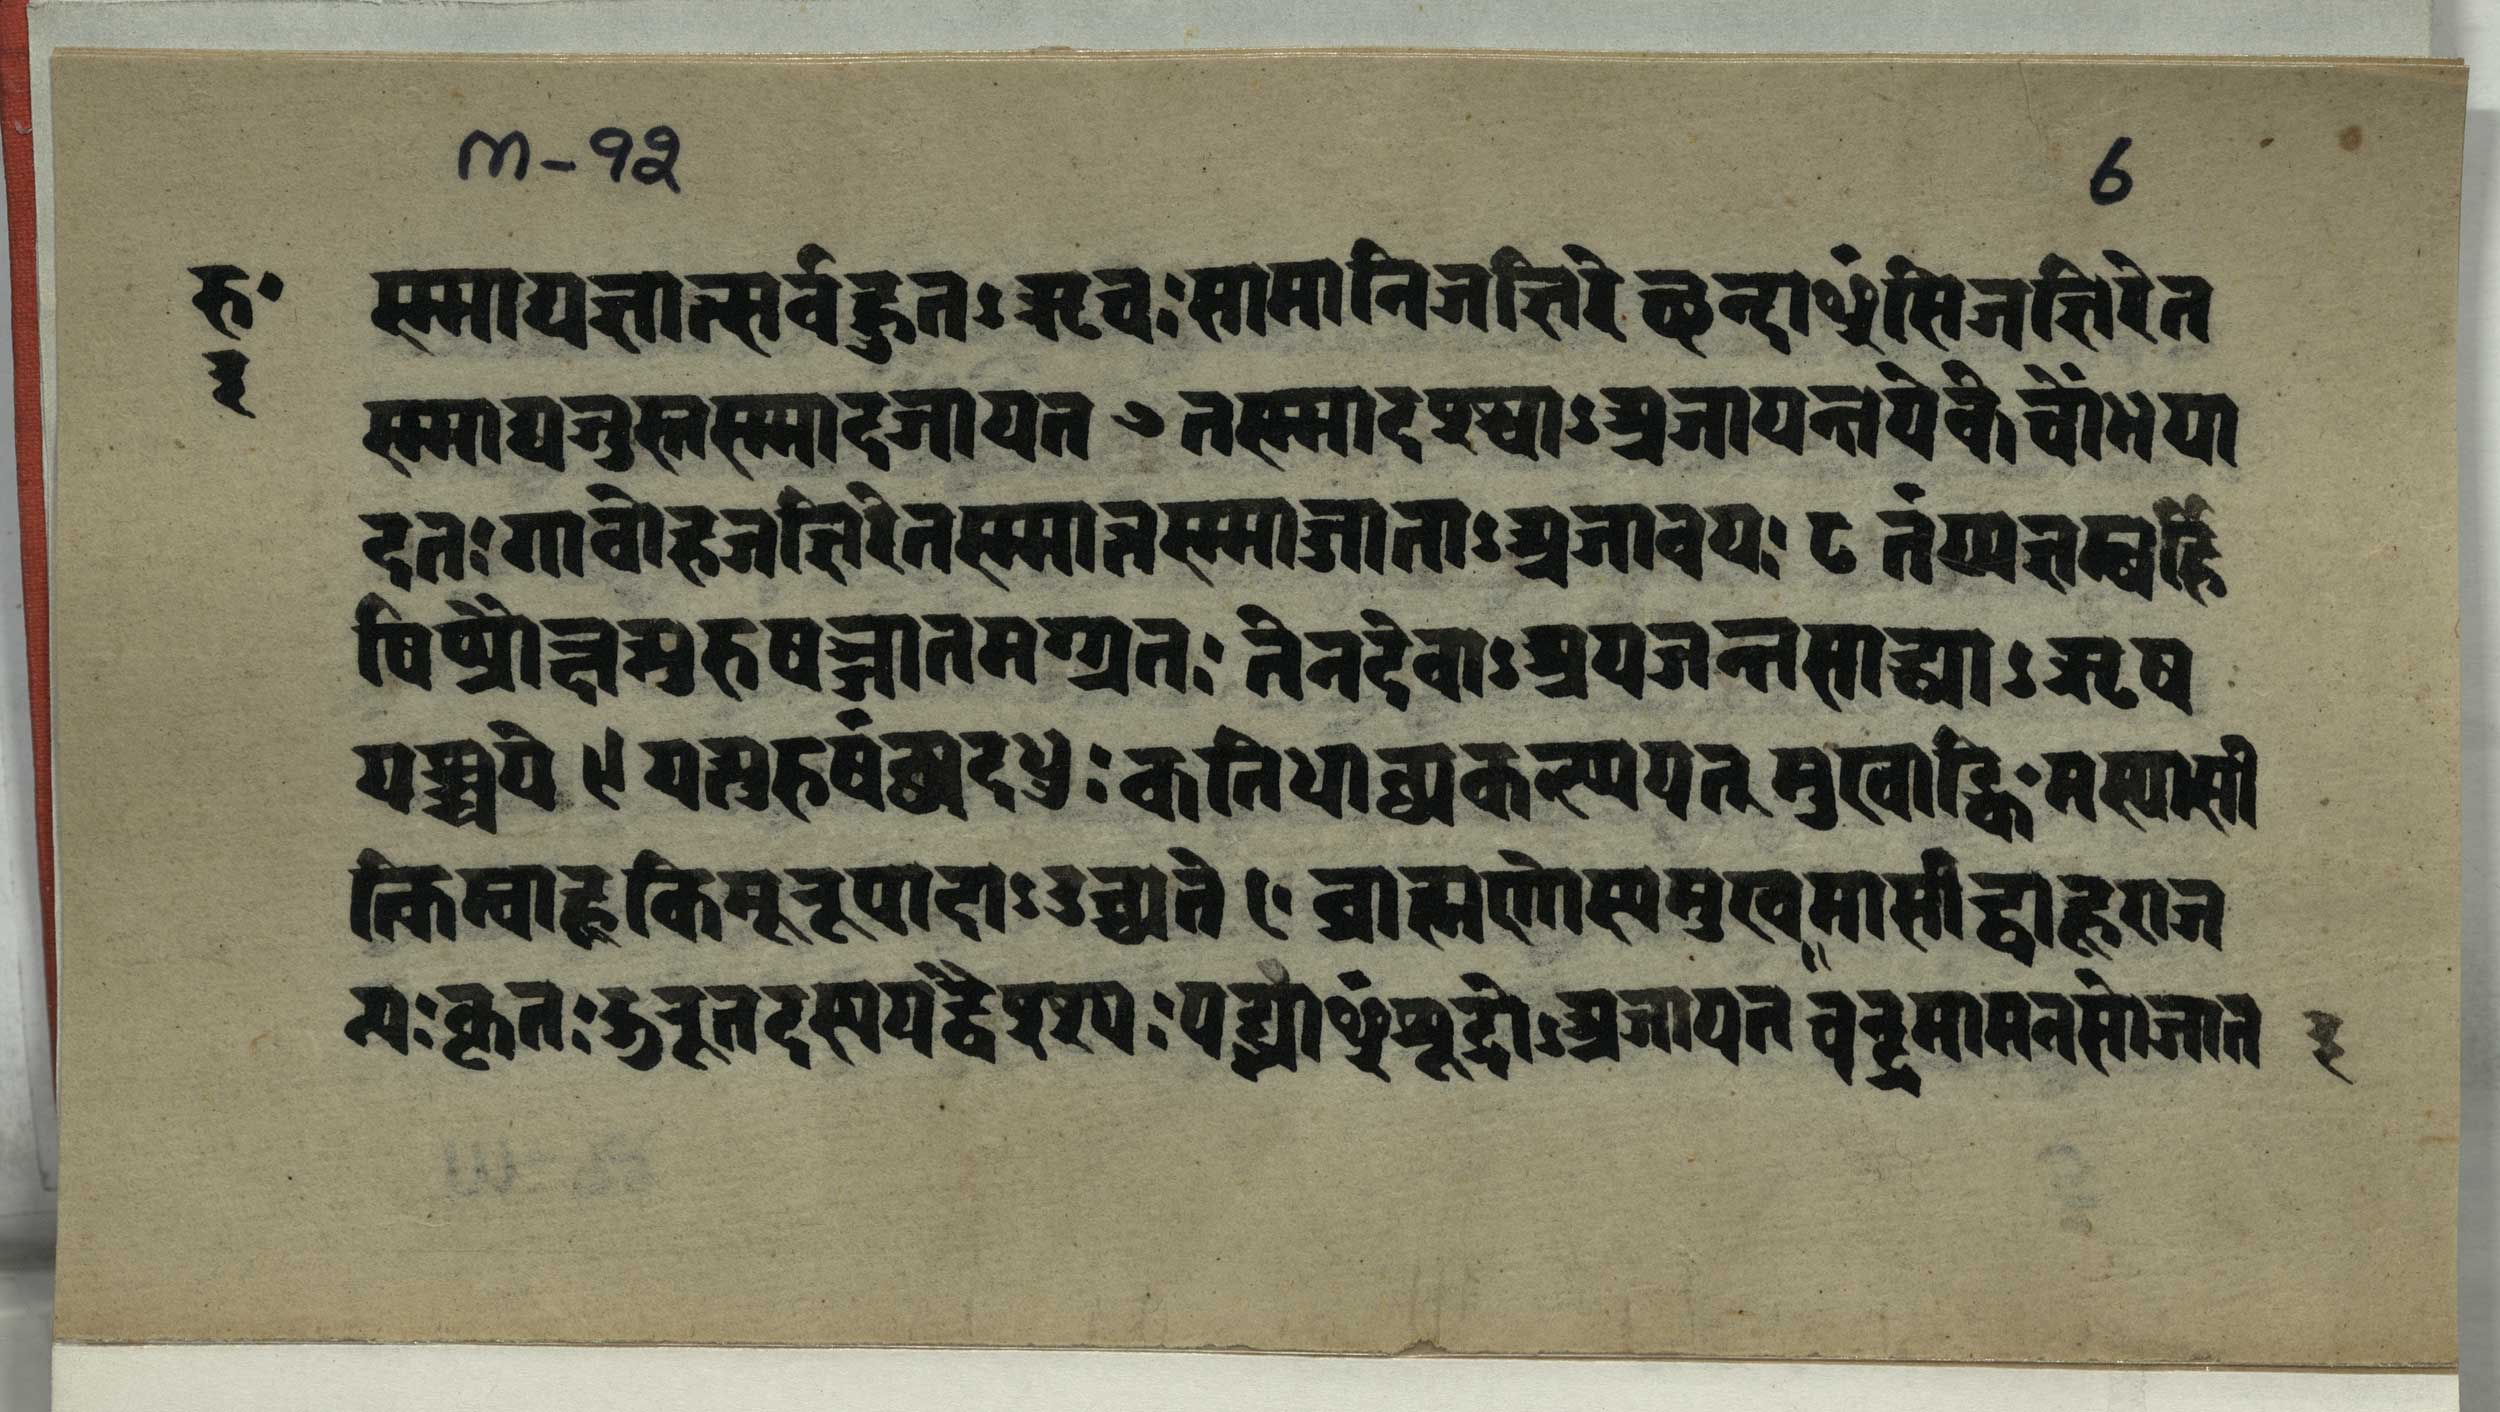 m-१२
6
रु॰
३
स्माद्यज्ञात्सर्वहुतऽऋचःसामानिजज्ञिरेछन्दाᳪसिजज्ञिरेत
स्माद्यजुस्तस्मादजायत ७ तस्मादश्वाऽअजायन्तयेकेचोभया
दतःगावोहजज्ञिरेतस्मात्तस्माज्जाताऽअजावयः ८ तंय्यज्ञम्बर्हि
षिप्प्रौक्षन्नपुरुषञ्जातमग्ग्रतः तेनदेवाऽअयजन्तसाद्ध्याऽऋष
यश्चये ९ यत्पुरुषंव्यदधुःकतिधाव्यकल्प्पयत् मुखङ्किमस्यासी
त्किम्बाहूकिमूरूपादाऽउच्च्येते ९॰ ब्राह्मणोस्यमुखमासीद्बाहूराज
न्यःकृतःऊरूतदस्ययद्वैश्श्यःपद्भ्याᳪशूद्रोऽअजायत चन्द्रमामनसोजात
३